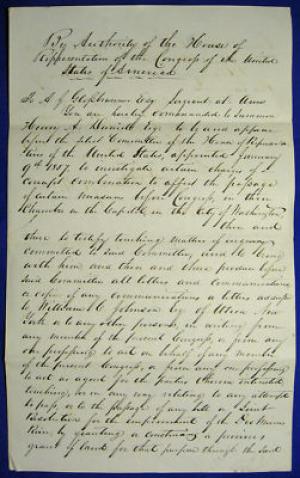 By Authority of the House of
Representatives of the Congress of the United
States of America
To A J Glossbrenner Esq Sergeant at Arms
You are hereby commanded to Summon
Henry A Esq. to be and appear
before the Select Committee of the House of Representa
tives of the United States, appointed January
9th 1857 to investigate certain charges of
corrupt combination to affect the passage
of certain measures before Congress, in their
Chamber in the Capitol in the City of Washington,
then and
there to testify touching matters of inquiry
committed to said Committee, and to bring
with him and then and there produce before
said Committee all letters and communications
a copy of any communications or letters address
to William C Johnson Esq of Utica New
York or to any other persons, in writing from
any member of the present Congress, or from any
one professing to act on behalf of any member
of the present Congress, or from any one professing
to act as agent for the parties therein interested
touching, or in any way relating to any attempt
to pass, or to the passage of any bill or Joint
Resolution for the improvement of the Des Moines
River, by granting a a previous
grant of land for that purpose through the said